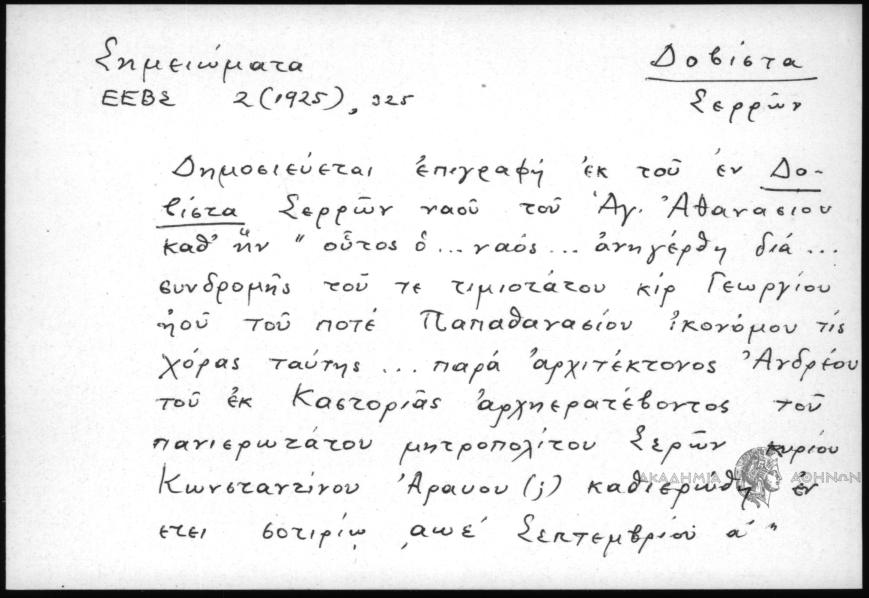 Σημειώματα
Δοβίστα
ΕΕΒΣ 2 (1925), 325
Σερρῶν
Δημοσιεύεται ἐπιγραφή ἐκ τοῦ ἐν Δο-
βίστα Σερρῶν ναοῦ τοῦ Ἁγ. Ἀθανασίου
καθ' ἥν " οὗτος ὁ ... ναός ... ἀνηγέρθη διά ...
συνδρομῆς τοῦ τε τιμιοτάτου κίρ Γεωργίου
ηοῦ τοῦ ποτέ Παπαθανασίου ἰκονόμου τίς
χόρας ταύτης ... παρά ἀρχιτέκτονος Ἀνδρέου
τοῦ ἐκ Καστοριᾶς ἀρχηερατέβοντος τοῦ
πανιερωτάτου μητροπολίτου Σερῶν κυρίου
Κωνσταντίνου Ἀραυου (;) καθιερώθη ἐν
ἔτει σοτιρίῳ ͵αωε΄ Σεπτεμβρίου α΄ "
ΑΚΑΔΗΜΙΑ ΑΘΗΝΩΝ